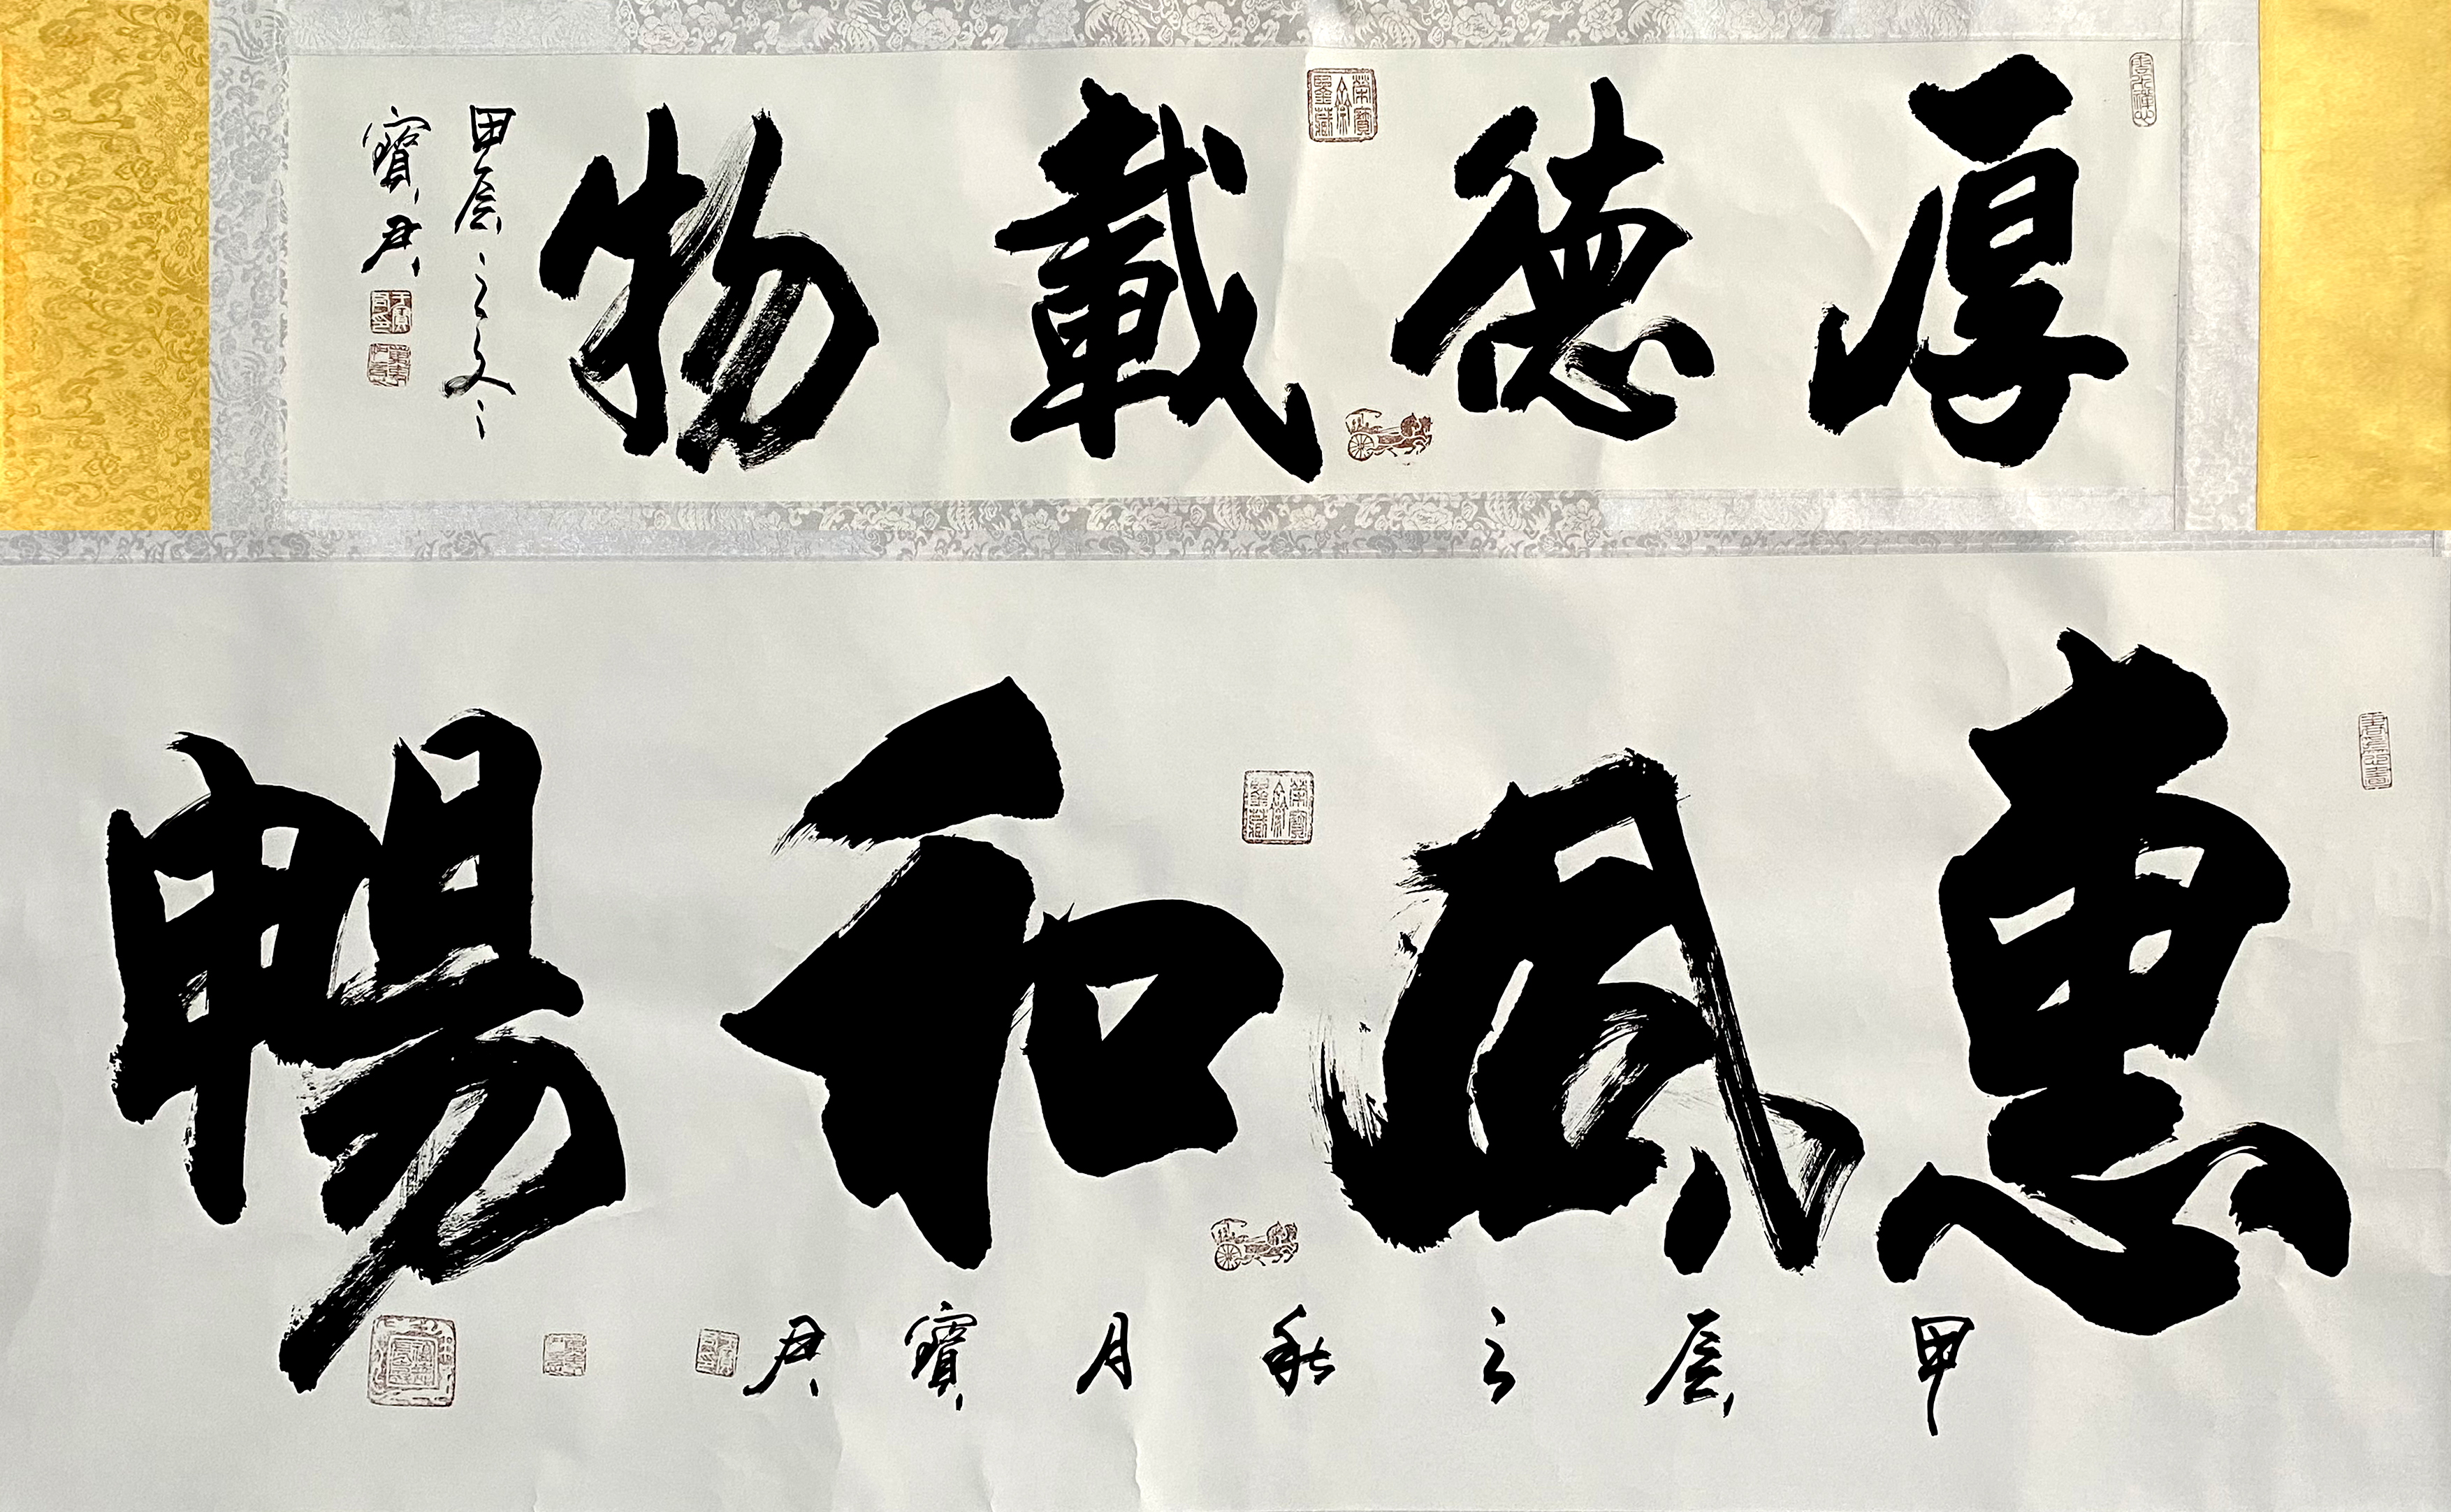 厚德載物
甲辰之冬
寶君
惠風和暢
甲辰之秋月寶君